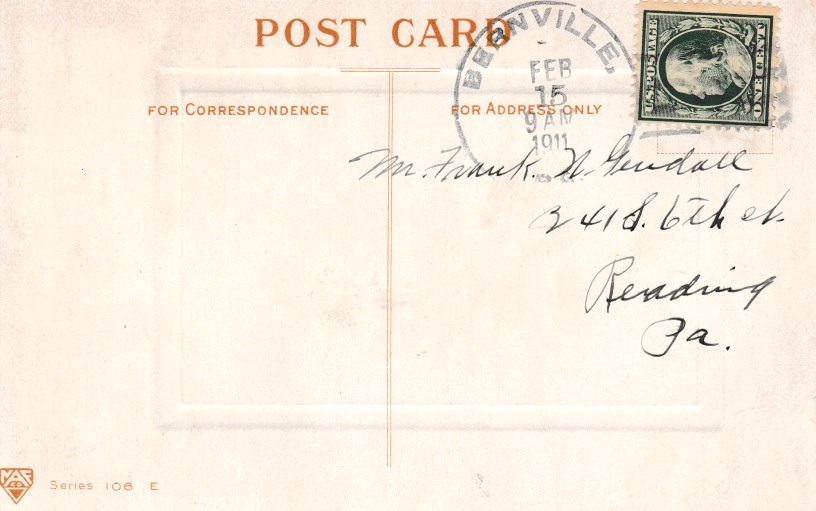 POST CARD
BERNVILLE,
FEB
15
9 AM
1911
PA.
U.S. POSTAGE
ONE CENT
FOR CORRESPONDENCE
FOR ADDRESS ONLY
Mr. Frank. N
241 S. 6th st.
Reading
Pa.
Series 106 E